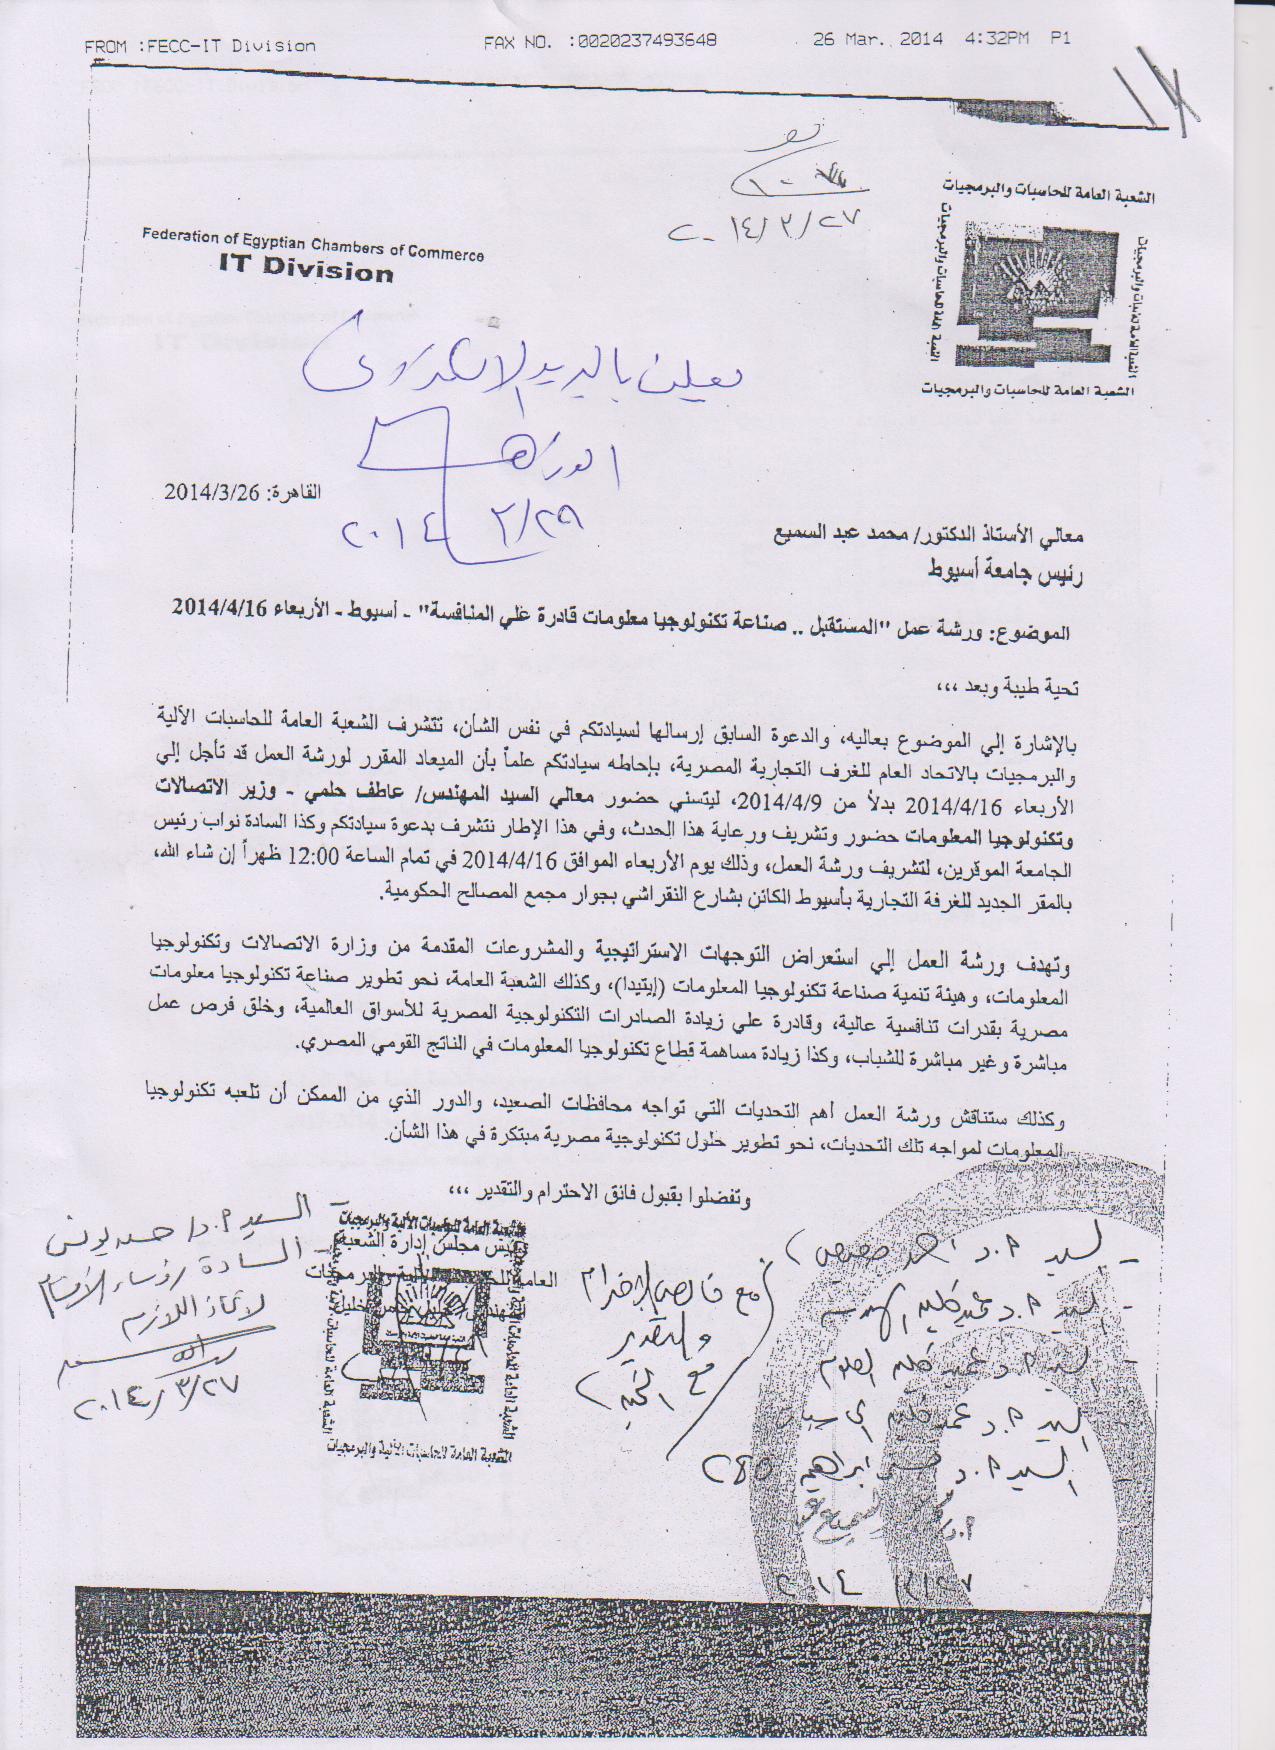 FROM :FECC-IT Division FAX NO. :0020237493648 26 Mar. 2014 4:32PM P1
٢٠١٤/٣/٢٧
الشعبة العامة للحاسبات والبرمجيات
Federation of Egyptian Chambers of Commerce
IT Division
الشعبة العامة للحاسبات والبرمجيات
يعلن بالبريد الالكتروني
٢٠١٤/٣/٢٩
القاهرة: 2014/3/26
معالي الأستاذ الدكتور/ محمد عبد السميع
رئيس جامعة أسيوط
الموضوع: ورشة عمل "المستقبل .. صناعة تكنولوجيا معلومات قادرة علي المنافسة" - أسيوط - الأربعاء 2014/4/16
تحية طيبة وبعد ،،،
بالإشارة إلي الموضوع بعاليه، والدعوة السابق إرسالها لسيادتكم في نفس الشأن، تتشرف الشعبة العامة للحاسبات الآلية
والبرمجيات بالاتحاد العام للغرف التجارية المصرية، بإحاطه سيادتكم علماً بأن الميعاد المقرر لورشة العمل قد تأجل إلي
الأربعاء 2014/4/16 بدلاً من 2014/4/9، ليتسني حضور معالي السيد المهندس/ عاطف حلمي - وزير الاتصالات
وتكنولوجيا المعلومات حضور وتشريف ورعاية هذا الحدث، وفي هذا الإطار نتشرف بدعوة سيادتكم وكذا السادة نواب رئيس
الجامعة الموقرين، لتشريف ورشة العمل، وذلك يوم الأربعاء الموافق 2014/4/16 في تمام الساعة 12:00 ظهراً إن شاء الله،
بالمقر الجديد للغرفة التجارية بأسيوط الكائن بشارع النقراشي بجوار مجمع المصالح الحكومية.
وتهدف ورشة العمل إلي استعراض التوجهات الاستراتيجية والمشروعات المقدمة من وزارة الاتصالات وتكنولوجيا
المعلومات، وهيئة تنمية صناعة تكنولوجيا المعلومات (إيتيدا)، وكذلك الشعبة العامة، نحو تطوير صناعة تكنولوجيا معلومات
مصرية بقدرات تنافسية عالية، وقادرة علي زيادة الصادرات التكنولوجية المصرية للأسواق العالمية، وخلق فرص عمل
مباشرة وغير مباشرة للشباب، وكذا زيادة مساهمة قطاع تكنولوجيا المعلومات في الناتج القومي المصري.
وكذلك ستناقش ورشة العمل أهم التحديات التي تواجه محافظات الصعيد، والدور الذي من الممكن أن تلعبه تكنولوجيا
المعلومات لمواجه تلك التحديات، نحو تطوير حلول تكنولوجية مصرية مبتكرة في هذا الشأن.
وتفضلوا بقبول فائق الاحترام والتقدير ،،،
رئيس مجلس إدارة الشعبة
العامة للحاسبات الآلية والبرمجيات
الشعبة العامة للحاسبات الآلية والبرمجيات
- السيد أ.د/ حسن يونس
- السادة رؤساء الأقسام
لاتخاذ اللازم
٢٠١٤/٣/٢٧
مع خالص الاحترام
والتقدير
مع التحية
- السيد أ.د أحمد
- السيد أ.د عميد كلية الهندسة
- السيد أ.د عميد كلية العلوم
السيد أ.د عميد كلية الحاسبات
السيد أ.د ابراهيم